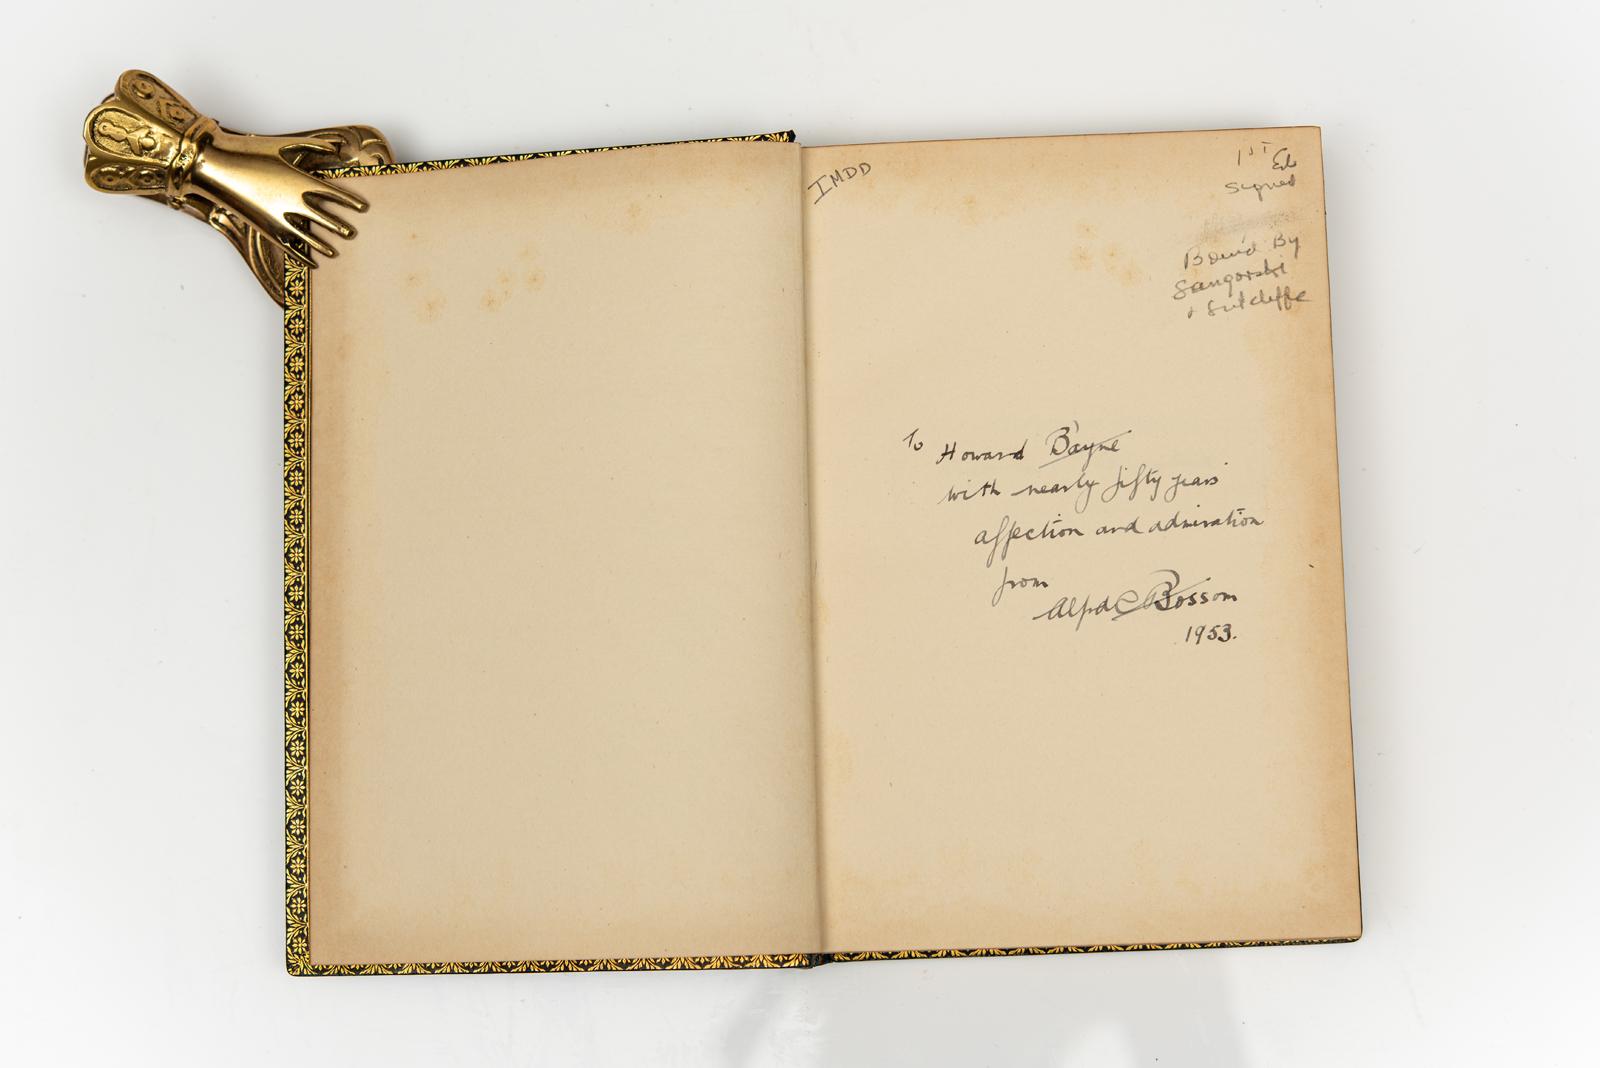 IMDD
1ST Ed
Signed
Bound By
Sangorski
& Sutcliffe
To Howard Bayne
with nearly fifty years
affection and admiration
from
Alfred C Bossom
1953.